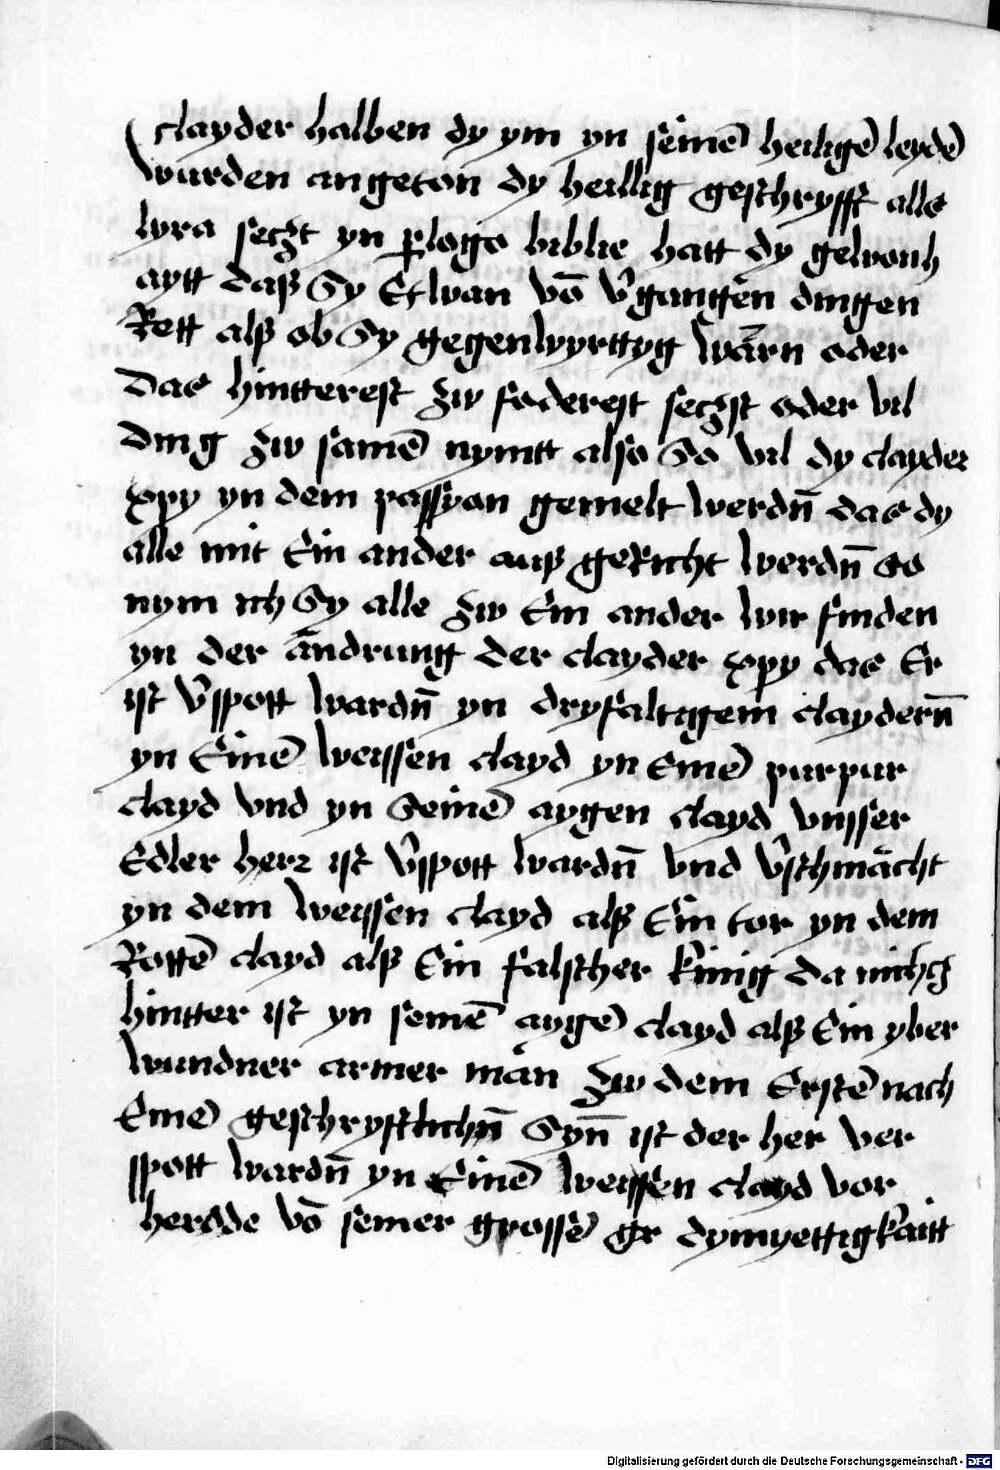 clayder halben dy ym yn seinē heiligē leydē
wurden angeton dy heillig geschryfft alls
lyra seczt yn ꝓlogo biblie hatt dy gewonh
aytt daß Sy Etwan võ v̉gangen dingen
Rett alß ob Sy gegenwyrttyg wärn oder
das hintterest zw foderest seczst oder vil
ding zw samē nymtt also So vil dy clayder
xpy yn dem passyon gemelt werdn̄ das dy
alle mit Ein ander auß geRicht werdn̄ so
nym ich Sy alle zw Ein ander wir finden
yn der ändrung der clayder xpy das Er
ist v̉spott wardn̄ yn dryfaltigem claydern̄
yn Einē weissen clayd yn Einē purpur
clayd vnd yn Seinē aygen clayd vnsser
Edler herr ist v̉spott wardn̄ vnd v̉schmächt
yn dem weissen clayd alß Ein tor yn dem
Rottē clayd alß Ein falscher king da nichcz
hintter ist yn seinē aygē clayd alß Ein yber
wundner armer man zw dem Erstē nach
Einē geschryftlichn̄ Syn̄ ist der her ver
spott wardn̄ yn Einē weissen clayd vor
herode võ seiner grossē gr dymyettigkaitt
Digitalisierung gefördert durch die Deutsche Forschungsgemeinschaft - DFG